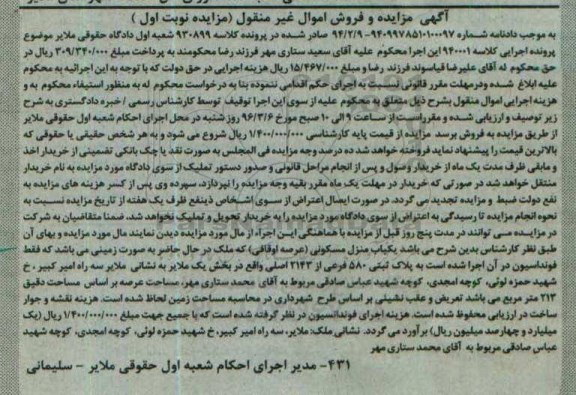 آگهی مزایده و فروش اموال غیر منقول (مزایده نوبت اول )
به موجب دادنامه شماره ۹۴۰۹۹۷۸۵۱۰۱۰۰۰۹۷-۹۴/۲/۹ صادر شده در پرونده کلاسه ۹۳۰۸۹۹ شعبه اول دادگاه حقوقی ملایر موضوع
پرونده اجرایی کلاسه ۹۴۰۰۰۱ این اجرا محکوم علیه آقای سعید ستاری مهر فرزند رضا محکومند به پرداخت مبلغ ۳۰۹/۳۴۰/۰۰۰ ریال در
حق محکوم له آقای علیرضا قیاسوند فرزند رضا و مبلغ ۱۵/۴۶۷/۰۰۰ ریال هزینه اجرایی در حق دولت که با توجه به این اجرائیه به محکوم
علیه ابلاغ شده و در مهلت مقرر قانونی نسبت به اجرای حکم اقدامی ننموده بنا به درخواست محکوم له به منظور استیفاء محکوم به و
هزینه اجرایی اموال منقول بشرح ذیل متعلق به محکوم علیه از سوی این اجرا توقیف توسط کارشناس رسمی / خبره دادگستری به شرح
زیر توصیف و ارزیابی شده و مقرر است از ساعت ۹ الی ۱۰ صبح مورخ ۹۶/۳/۶ روز شنبه در محل اجرای احکام شعبه اول حقوقی ملایر
از طریق مزایده به فروش برسد مزایده از قیمت پایه کارشناسی ۱/۴۰۰/۰۰۰/۰۰۰ ریال شروع می شود و به هر شخص حقیقی یا حقوقی که
بالاترین قیمت را پیشنهاد نماید فروخته خواهد شد ده درصد وجه مزایده فی المجلس به صورت نقد یا چک بانکی تضمینی از خریدار اخذ
و مابقی ظرف مدت یک ماه از خریدار وصول و پس از انجام مراحل قانونی و صدور دستور تملیک از سوی دادگاه مورد مزایده به نام خریدار
منتقل خواهد شد در صورتی که خریدار در مهلت یک ماه مقرر بقیه وجه مزایده را نپردازد، سپرده وی پس از کسر هزینه های مزایده به
نفع دولت ضبط و مزایده تجدید می گردد. در صورت ایصال اعتراض از سوی اشخاص ذینفع ظرف یک هفته از تاریخ مزایده نسبت به
نحوه انجام مزایده تا رسیدگی به اعتراض از سوی دادگاه مورد مزایده را به خریدار تحویل و تملیک نخواهد شد، ضمنا متقاضیان به شرکت
در مزایده می توانند در مدت پنج روز قبل از مزایده با هماهنگی این اجراء از مال مورد مزایده دیدن نمایند مال مورد مزایده و بهای آن
طبق نظر کارشناس بدین شرح می باشد یکباب منزل مسکونی (عرصه اوقافی) که ملک در حال حاضر به صورت زمینی می باشد که فقط
فونداسیون در آن اجرا شده است به پلاک ثبتی ۵۸۰ فرعی از ۲۱۴۳ اصلی واقع در بخش یک ملایر به نشانی ملایر سه راه امیر کبیر ، خ
شهید حمزه لوئی، کوچه امجدی، کوچه شهید عباس صادقی مربوط به آقای محمد ستاری مهر، مساحت عرصه بر اساس مساحت دقیق
۲۱۳ متر مربع می باشد تعریض و عقب نشینی بر اساس طرح شهرداری در محاسبه مساحت زمین لحاظ شده است. هزینه نقشه و جواز
ساخت در ارزیابی محفوظ شده است. هزینه اجرای فونداسیون در نظر گرفته شده است که با جمیع جهت مبلغ ۱/۴۰۰/۰۰۰/۰۰۰ ریال (یک
میلیارد و چهارصد میلیون ریال) برآورد می گردد. نشانی ملک: ملایر، سه راه امیر کبیر، خ شهید حمزه لوئی، کوچه امجدی، کوچه شهید
عباس صادقی مربوط به آقای محمد ستاری مهر
۴۳۱- مدیر اجرای احکام شعبه اول حقوقی ملایر - سلیمانی